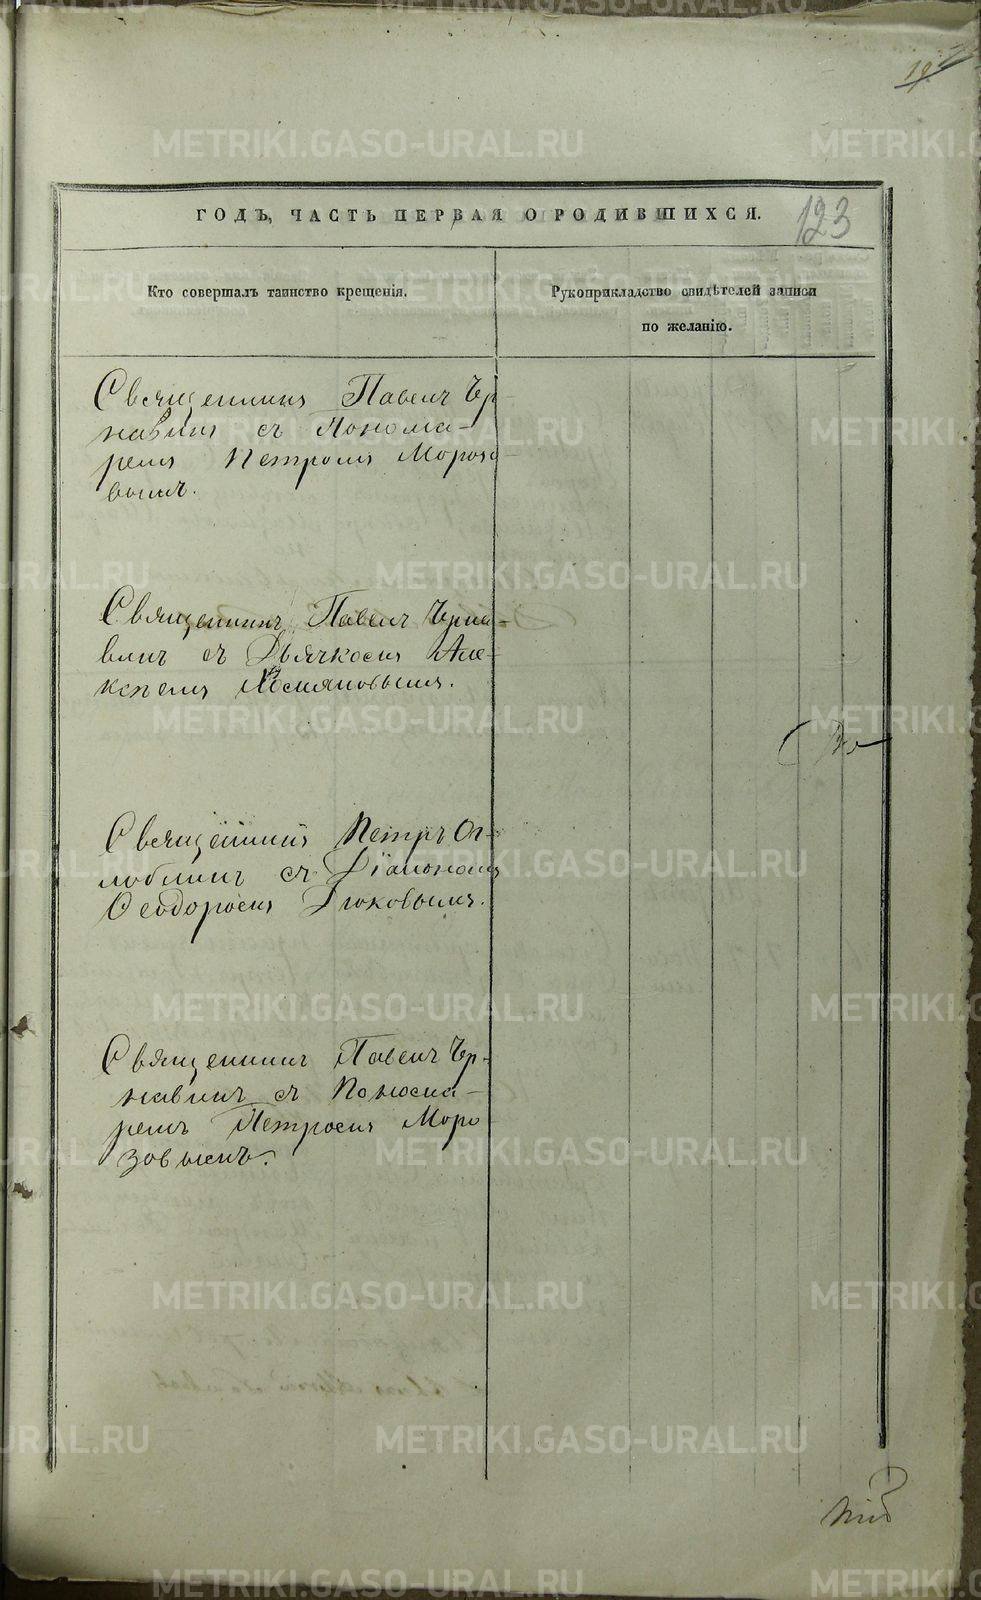 ГОДЪ, ЧАСТЬ ПЕРВАЯ О РОДИВШИХСЯ.
123
Кто совершалъ таинство крещенія.
Рукоприкладство свидѣтелей записи
по желанію.
Священникъ Павелъ Чер
навинъ съ Понома-
ремъ Петромъ Морозо-
вымъ.
Священникъ Павелъ Черна-
винъ съ Дьячкомъ Але-
ксѣемъ
Священникъ Петръ Ог-
лоблинъ съ Діакономъ
Ѳеодоромъ Дюковымъ.
Священникъ Павелъ Чер-
навинъ съ Понома-
ремъ Петромъ Моро
зовымъ.
METRIKI.GASO-URAL.RU